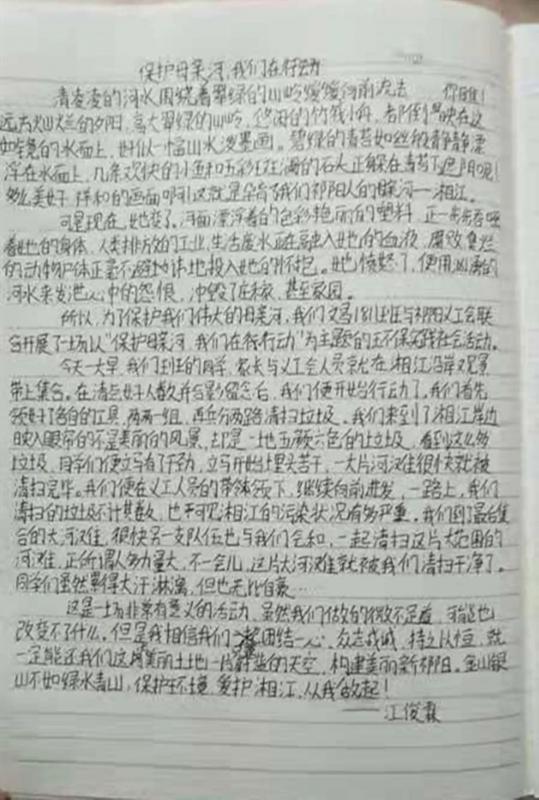 保护母亲河,我们在行动
清凌凌的河水围绕着翠绿的山岭缓缓向前流去 你瞧!
远方灿烂的夕阳,高大翠绿的山岭,悠闲的竹筏小舟,都倒映在这
如镜的水面上,好似一幅山水泼墨画。碧绿的青苔如丝般静静漂
浮在水面上,几条欢快的小鱼和五彩斑斓的石头正躲在青苔下遮阴呢!
多么美好,祥和的画面啊!这就是孕育了我们祁阳人的母亲河—湘江。
可是现在,她变了。河面漂浮着的色彩艳丽的塑料,正一点点吞噬
着她的身体,人类排放的工业,生活废水正在融入她的血液,腐败臭烂
的动物尸体正毫不避讳地投入她的怀抱。她愤怒了,便用汹涌的
河水来发泄心中的怨恨,冲毁了庄稼,甚至家园。
所以,为了保护我们伟大的母亲河,我们文昌1811班与祁阳义工会联
合开展了一场以"保护母亲河,我们在行动"为主题的环保实践社会活动。
今天一大早,我们班的同学,家长与义工会人员就在湘江沿岸观景
带上集合。在清点好人数并合影留念后,我们便开始行动了。我们首先
领好了各自的工具,两两一组,再兵分两路清扫垃圾。我们来到了湘江岸边
映入眼帘的不是美丽的风景,却是一地五颜六色的垃圾,看到这么多
垃圾,同学们便立马有了干劲,立马开始埋头苦干,一大片河滩很快就被
清扫完毕。我们便在义工人员的带领下,继续向前进发,一路上,我们
清扫的垃圾不计其数,也可见湘江的污染状况有多严重。我们到了最后集
合的大河滩,很快另一支队伍也与我们会和,一起清扫这片大范围的
河滩,正所谓人多力量大,不一会儿,这片大河滩就被我们清扫干净了。
同学们虽然累得大汗淋漓,但也无比自豪…
这是一场非常有意义的活动,虽然我们做的微不足道,可能也
改变不了什么。但是我相信我们团结一心,众志成城,持之以恒,就
一定能还我们这片美丽土地一片蔚蓝的天空,构建美丽新祁阳。金山银
山不如绿水青山,保护环境,爱护湘江,从我做起!
——江俊霖